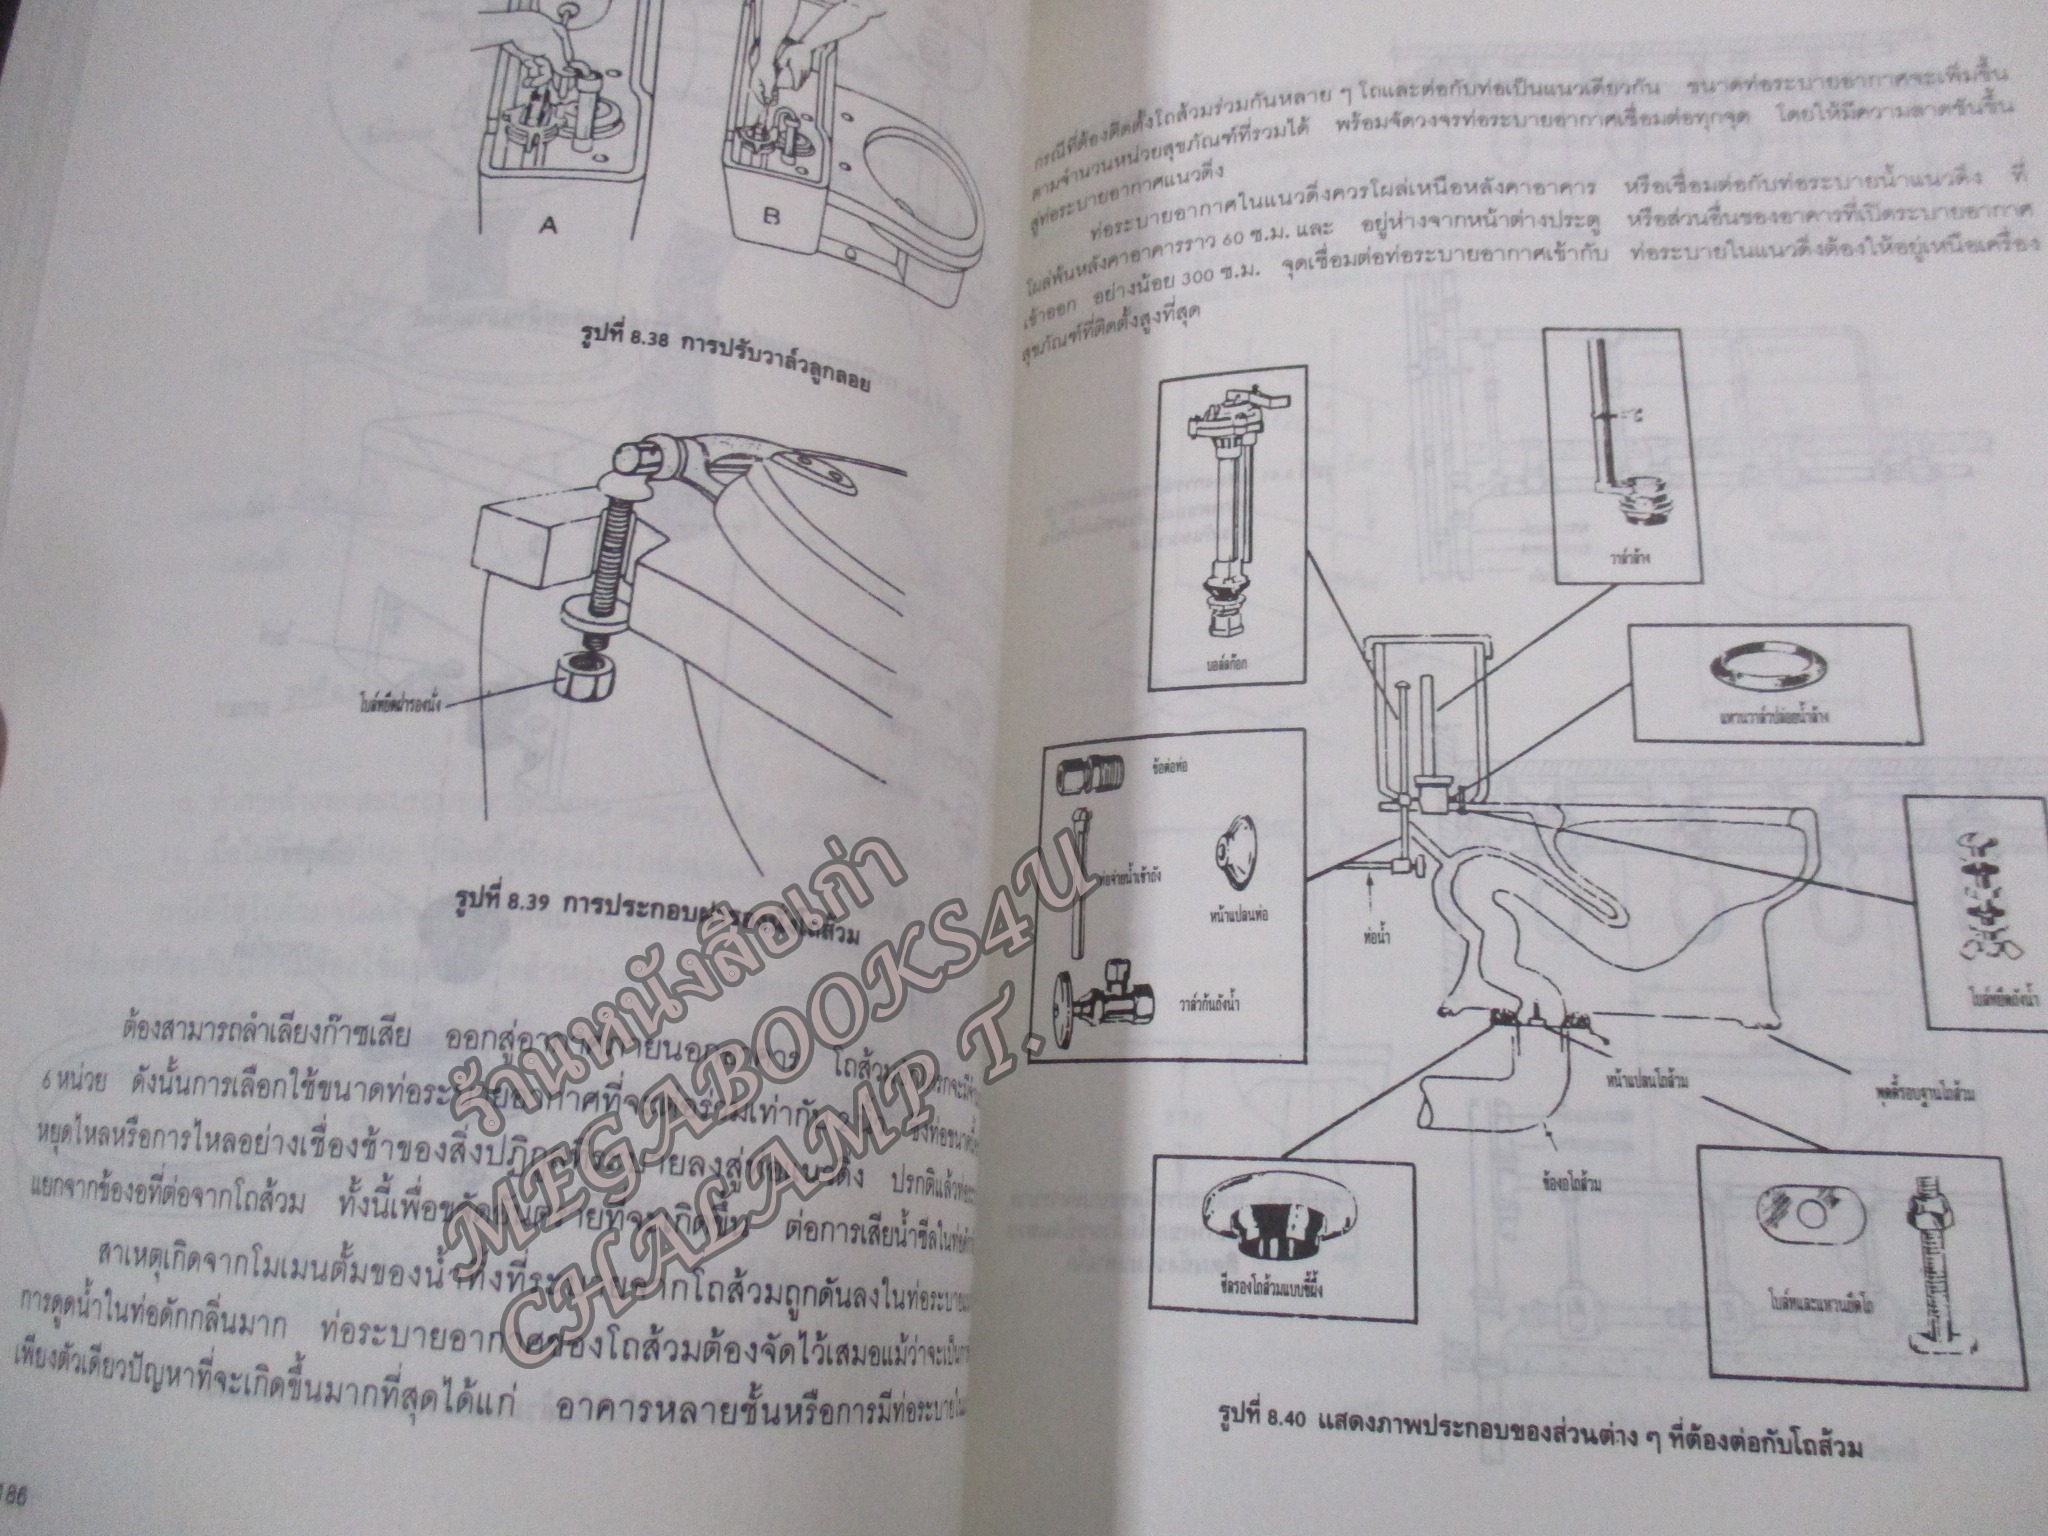 A
B
รูปที่ 8.38 การปรับวาล์วลูกลอย
โบล์ทยึดฝารองนั่ง
รูปที่ 8.39 การประกอบ โถส้วม
ต้องสามารถลำเลียงก๊าซเสีย ออกสู่ ภายนอกอาคาร โถส้วม
6 หน่วย ดังนั้นการเลือกใช้ขนาดท่อระบายอากาศที่ เท่ากับ ซึ่งท่อขนาดนี้
หยุดไหลหรือการไหลอย่างเชื่องช้าของสิ่งปฏิกูล ระบายลงสู่ แนวดิ่ง ปรกติแล้วท่อ
แยกจากข้องอที่ต่อจากโถส้วม ทั้งนี้เพื่อขจัดอันตรายที่จะเกิดขึ้น ต่อการเสียน้ำซีลในท่อ
สาเหตุเกิดจากโมเมนตั้มของน้ำทิ้งที่ระบายจากโถส้วมถูกดันลงในท่อระบาย
การดูดน้ำในท่อดักกลิ่นมาก ท่อระบายอากาศของโถส้วมต้องจัดไว้เสมอแม้ว่าจะเป็น
เพียงตัวเดียวปัญหาที่จะเกิดขึ้นมากที่สุดได้แก่ อาคารหลายชั้นหรือการมีท่อระบายใน
186
ร้านหนังสือเก่า
MEGABOOKS4U
CHALAMP T.
กรณีที่ต้องติดตั้งโถส้วมร่วมกันหลาย ๆ โถและต่อกับท่อเป็นแนวเดียวกัน ขนาดท่อระบายอากาศจะเพิ่มขึ้น
ตามจำนวนหน่วยสุขภัณฑ์ที่รวมได้ พร้อมจัดวงจรท่อระบายอากาศเชื่อมต่อทุกจุด โดยให้มีความลาดชันขึ้น
สู่ท่อระบายอากาศแนวดิ่ง
ท่อระบายอากาศในแนวดิ่งควรโผล่เหนือหลังคาอาคาร หรือเชื่อมต่อกับท่อระบายน้ำแนวดิ่ง ที่
โผล่พ้นหลังคาอาคารราว 60 ซ.ม. และ อยู่ห่างจากหน้าต่างประตู หรือส่วนอื่นของอาคารที่เปิดระบายอากาศ
เข้าออก อย่างน้อย 300 ซ.ม. จุดเชื่อมต่อท่อระบายอากาศเข้ากับ ท่อระบายในแนวดิ่งต้องให้อยู่เหนือเครื่อง
สุขภัณฑ์ที่ติดตั้งสูงที่สุด
บอล์ลก๊อก
วาล์วล้าง
แหวนวาล์วปล่อยน้ำล้าง
ข้อต่อท่อ
ท่อจ่ายน้ำเข้าถัง
หน้าแปลนท่อ
วาล์วกันถังน้ำ
ท่อน้ำ
โบล์ทยึดถังน้ำ
หน้าแปลนโถส้วม
พุตตี้รอบฐานโถส้วม
ข้องอโถส้วม
ซีลรองโถส้วมแบบขี้ผึ้ง
โบล์ทและแหวนยึดโถ
รูปที่ 8.40 แสดงภาพประกอบของส่วนต่าง ๆ ที่ต้องต่อกับโถส้วม